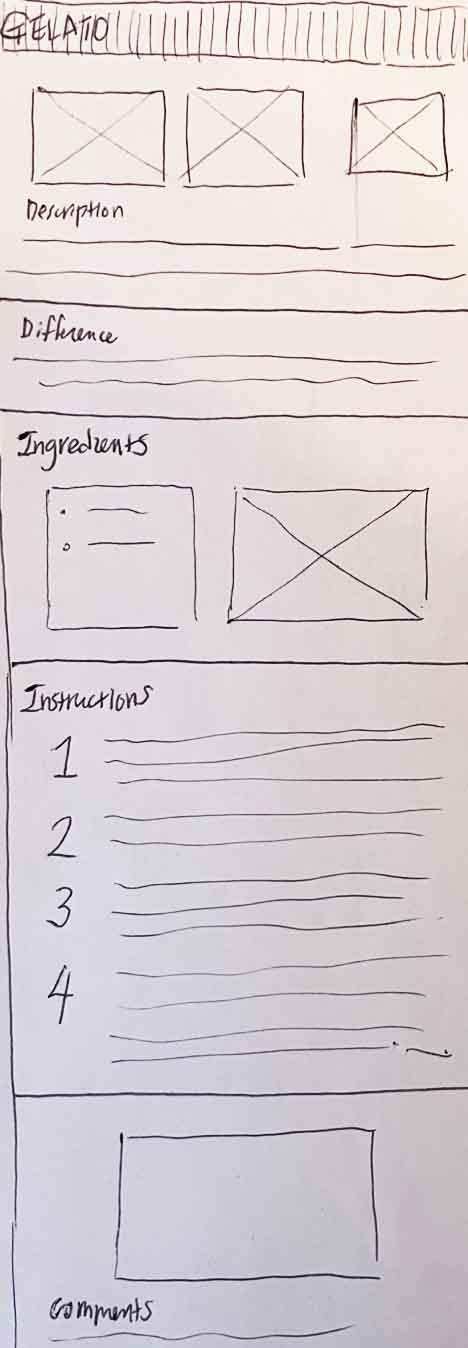 GELATIO
Description
Difference
Ingredients
Instructions
1
2
3
4
Comments